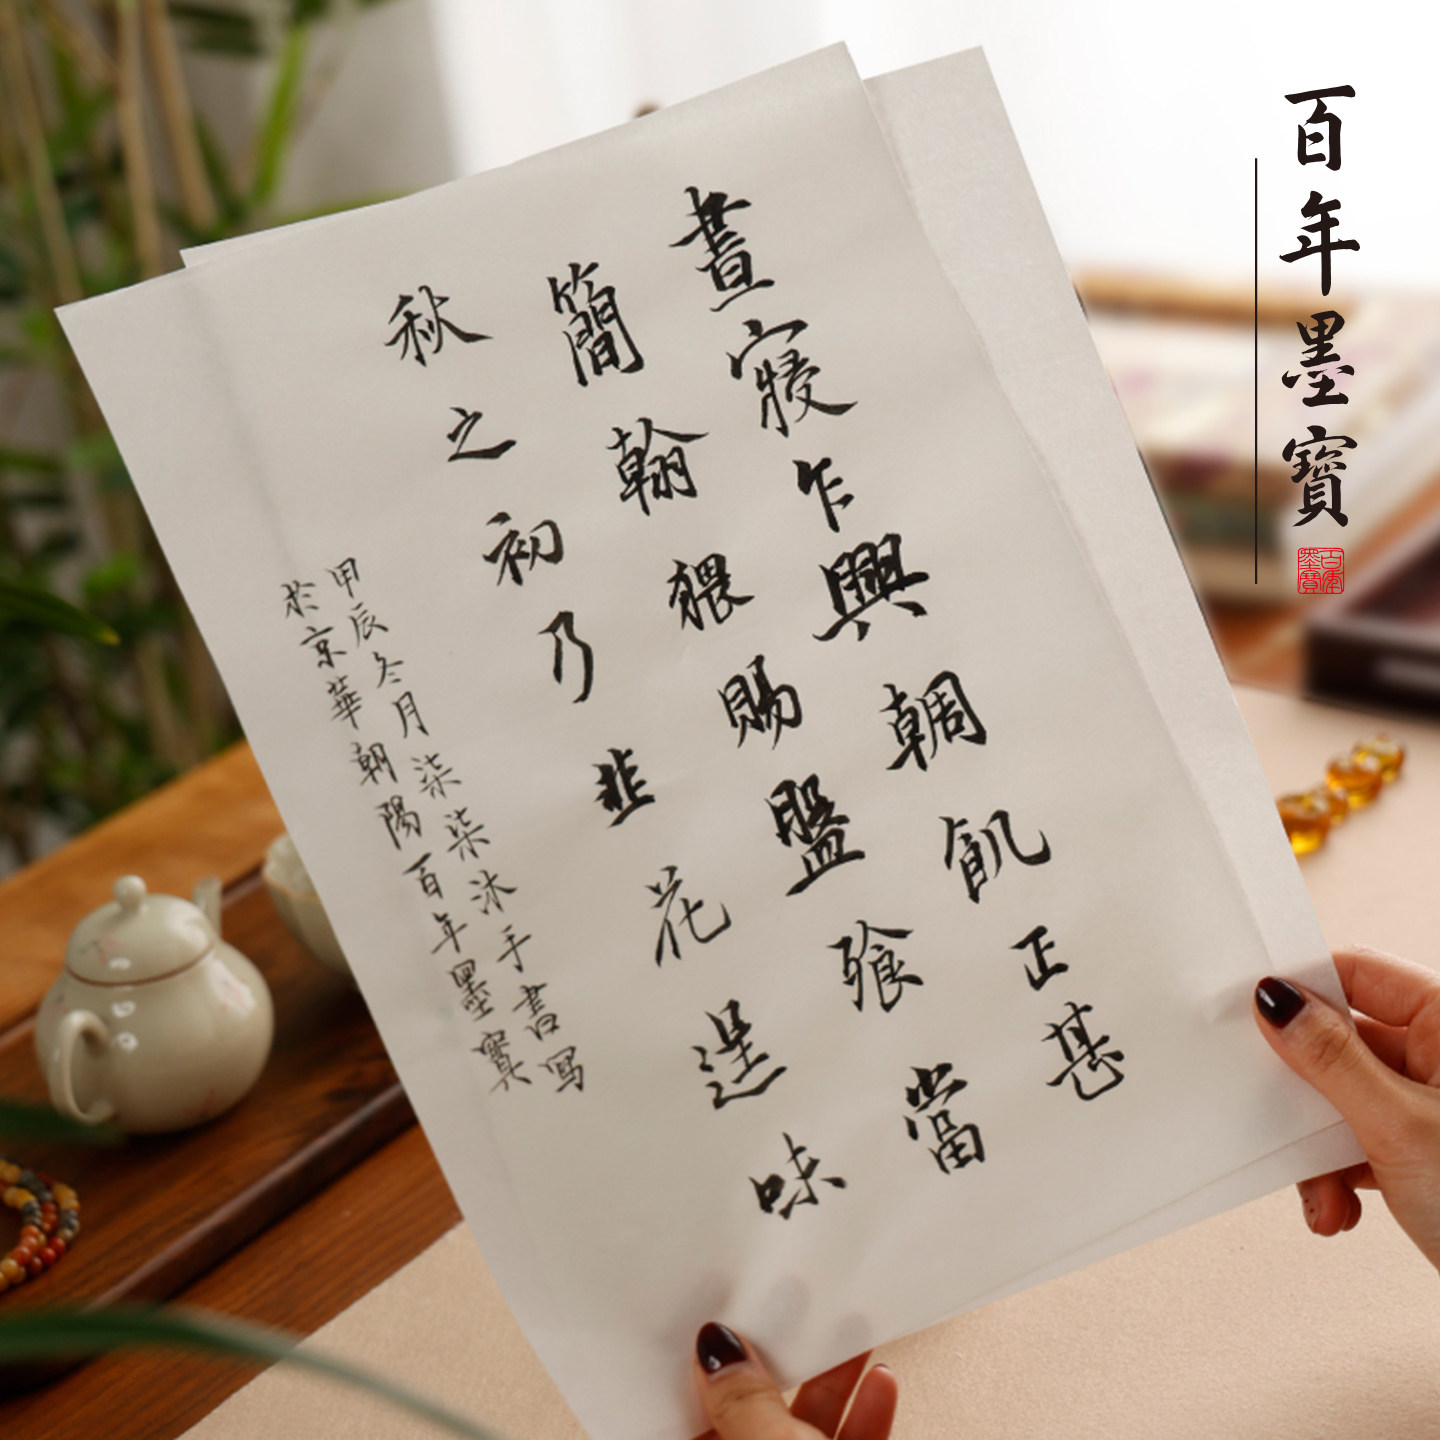 晝寢乍興輖飢正甚
簡翰猥賜盤飱當
秋之初乃韭花逞味
甲辰冬月柒柒沐手書寫
於京華朝陽百年墨寶
百年墨寶
百年墨寶